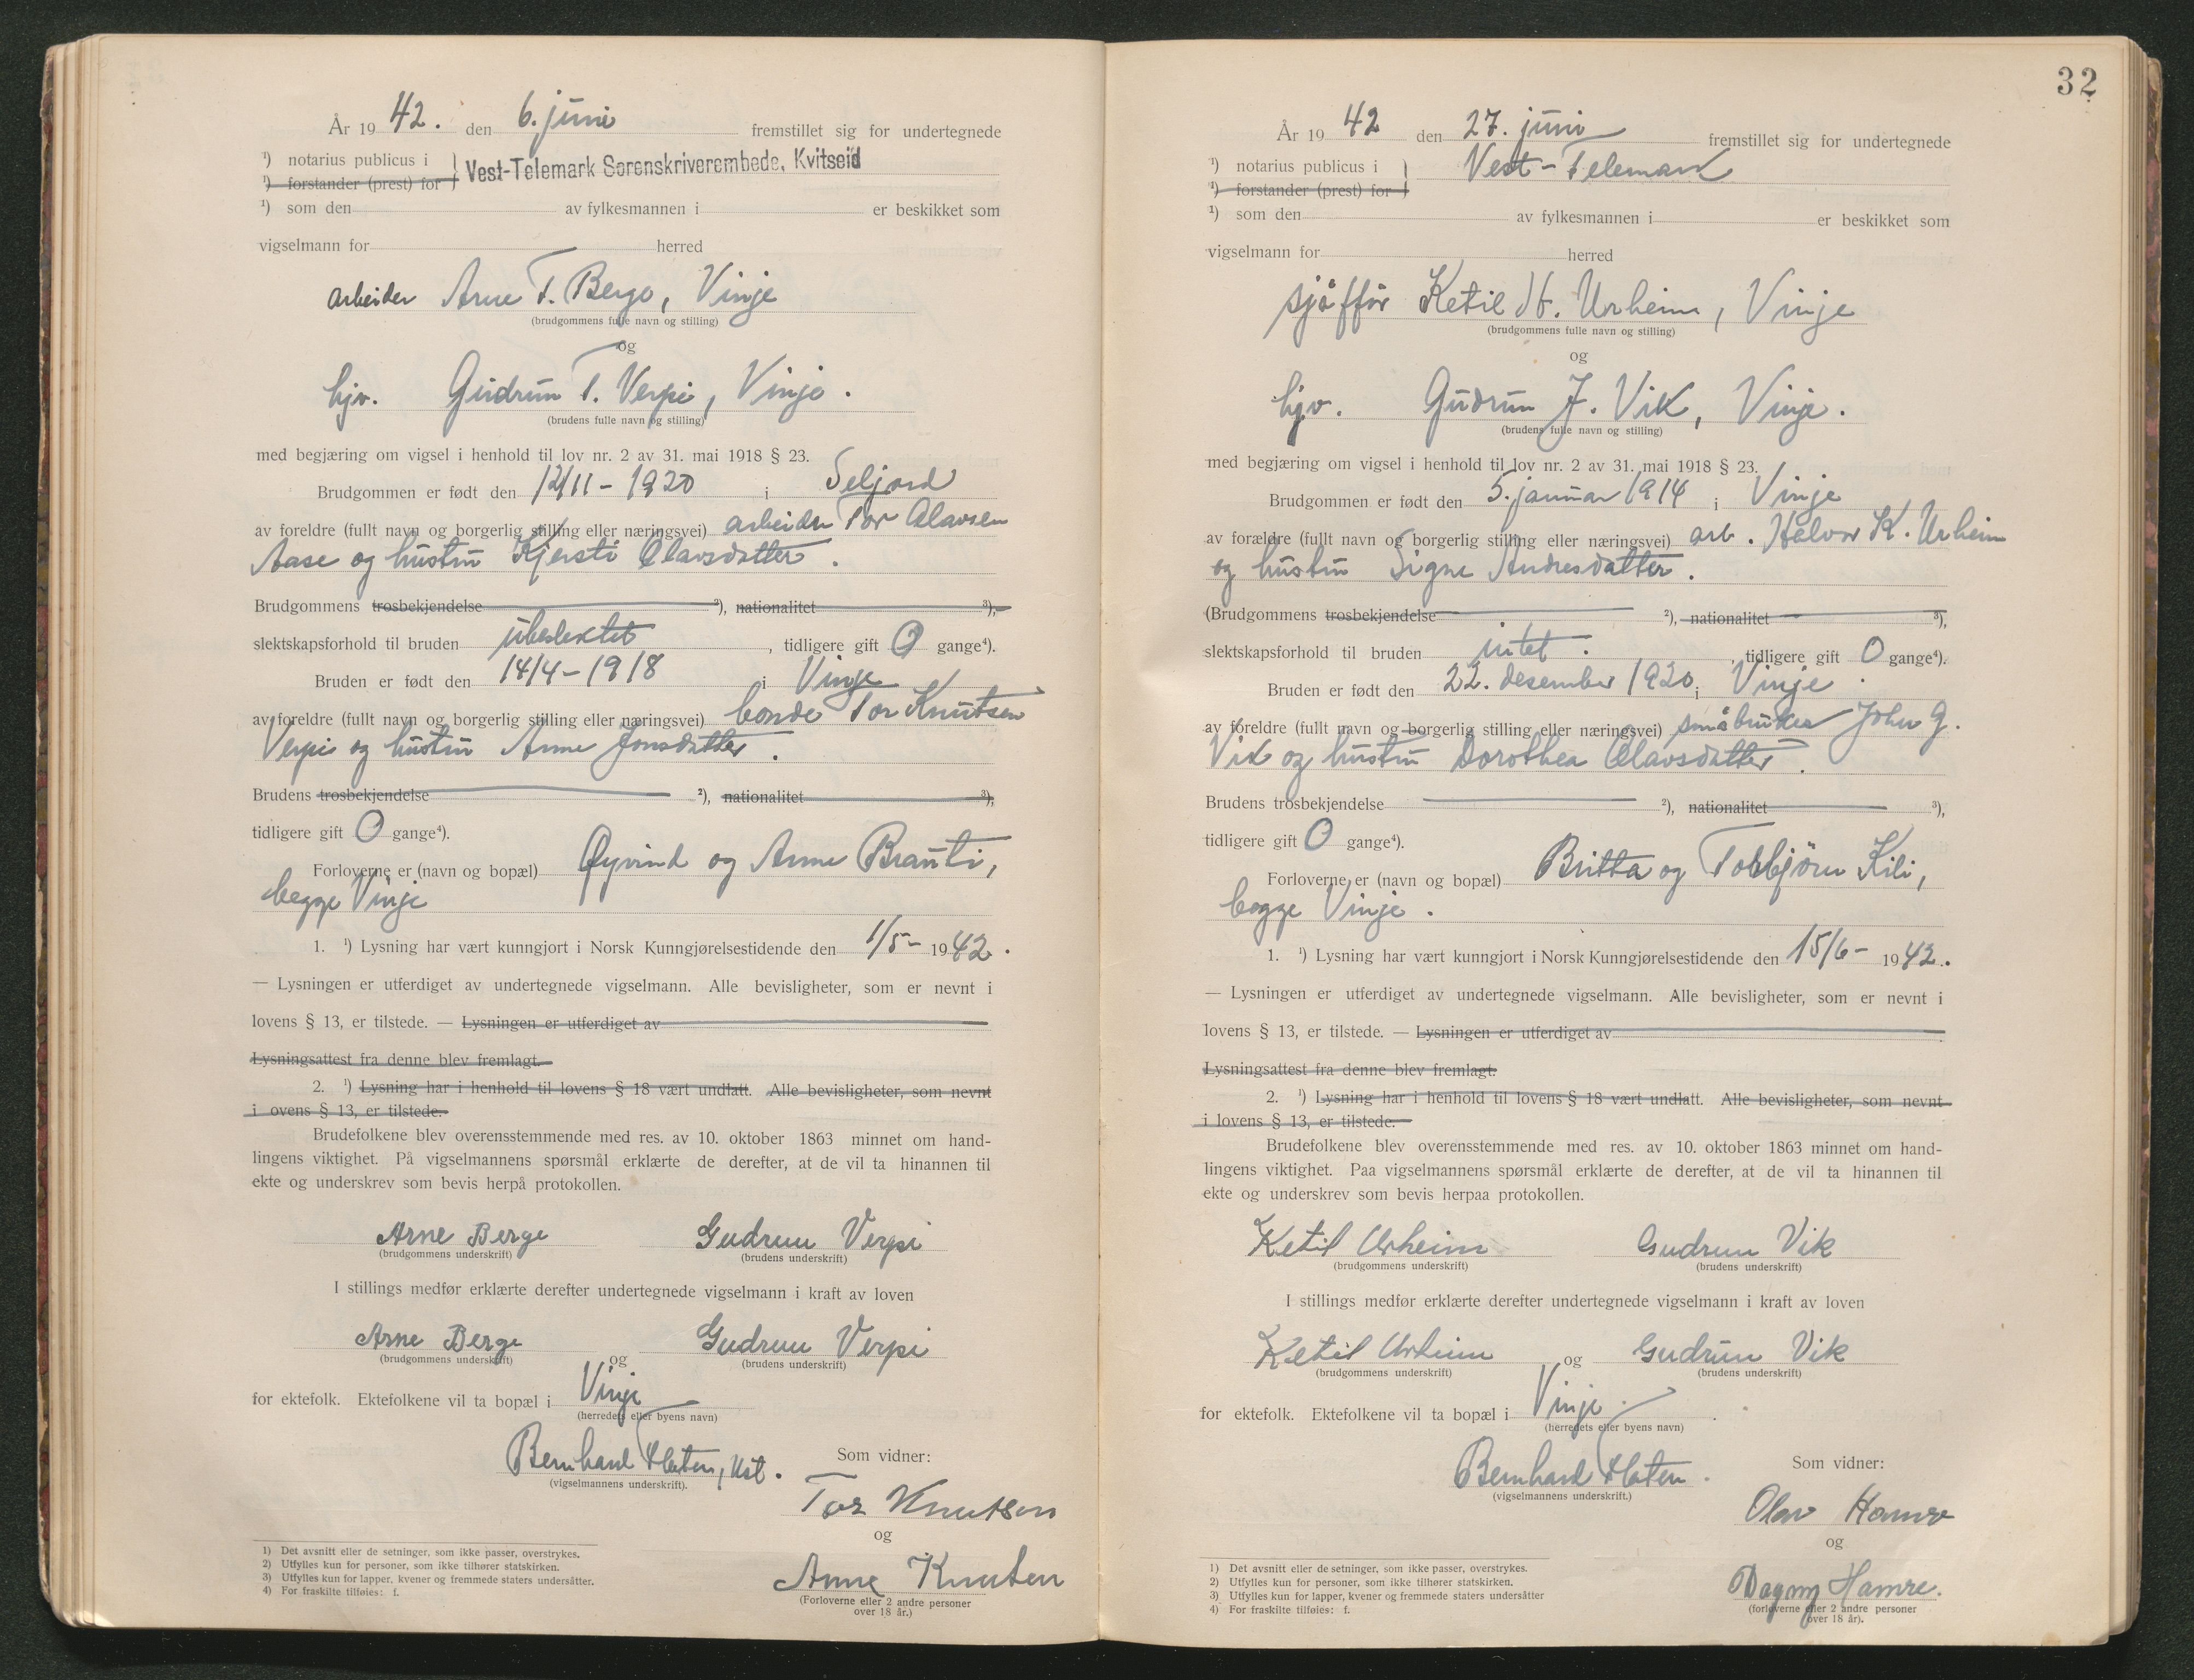 År 19 42. den 6. juni fremstillet sig for undertegnede
¹) notarius publicus i } Vest-Telemark Sorenskriverembede, Kvitseid
¹) forstander (prest) for
¹) som den av fylkesmannen i er beskikket som
vigselmann for herred
arbeider Arne T. Berge, Vinje
(brudgommens fulle navn og stilling)
og
hjv. Gudrun T. Verpi, Vinje.
(brudens fulle navn og stilling)
med begjæring om vigsel i henhold til lov nr. 2 av 31. mai 1918 § 23.
Brudgommen er født den 12/11 - 1920 i Seljord
av foreldre (fullt navn og borgerlig stilling eller næringsvei) arbeider Tor Olavsen
Aase og hustru Kjersti Olavsdatter.
Brudgommens trosbekjendelse ²), nationalitet ³),
slektskapsforhold til bruden ubeslektet, tidligere gift 0 gange⁴).
Bruden er født den 14/4 - 1918 i Vinje
av foreldre (fullt navn og borgerlig stilling eller næringsvei) bonde Tor Knutsen
Verpi og hustru Anne Jonsdatter.
Brudens trosbekjendelse ²), nationalitet ³),
tidligere gift 0 gange⁴).
Forloverne er (navn og bopæl) Øyvind og Anne Brauti,
begge Vinje
1. ¹) Lysning har vært kunngjort i Norsk Kunngjørelsestidende den 1/5 - 1942.
— Lysningen er utferdiget av undertegnede vigselmann. Alle bevisligheter, som er nevnt i
lovens § 13, er tilstede. — Lysningen er utferdiget av
Lysningsattest fra denne blev fremlagt.
2. ¹) Lysning har i henhold til lovens § 18 vært undlatt. Alle bevisligheter, som nevnt
i ovens § 13, er tilstede.
Brudefolkene blev overensstemmende med res. av 10. oktober 1863 minnet om hand-
lingens viktighet. På vigselmannens spørsmål erklærte de derefter, at de vil ta hinannen til
ekte og underskrev som bevis herpå protokollen.
Arne Berge Gudrun Verpi
(brudgommens underskrift) (brudens underskrift)
I stillings medfør erklærte derefter undertegnede vigselmann i kraft av loven
Arne Berge og Gudrun Verpi
(brudgommens underskrift) (brudens underskrift)
for ektefolk. Ektefolkene vil ta bopæl i Vinje
(herredets eller byens navn)
Bernhard Flaten, kst.
(vigselmannens underskrift).
Som vidner:
Tor Knutsen
og
Anne Knutsen
(Forloverne eller 2 andre personer
over 18 år.)
1) Det avsnitt eller de setninger, som ikke passer, overstrykes.
2) Utfylles kun for personer, som ikke tilhører statskirken.
3) Utfylles kun for lapper, kvener og fremmede staters undersåtter.
4) For fraskilte tilføies: f.
32
År 19 42 den 27. juni fremstillet sig for undertegnede
¹) notarius publicus i } Vest-Telemark
¹) forstander (prest) for
¹) som den av fylkesmannen i er beskikket som
vigselmann for herred
sjåffør Ketil H. Urheim, Vinje
(brudgommens fulle navn og stilling)
og
hjv. Gudrun J. Vik, Vinje.
(brudens fulle navn og stilling)
med begjæring om vigsel i henhold til lov nr. 2 av 31. mai 1918 § 23.
Brudgommen er født den 5. januar 1914 i Vinje
av forældre (fullt navn og borgerlig stilling eller næringsvei) arb. Halvor K. Urheim
og hustru Signe Andresdatter.
(Brudgommens trosbekjendelse ²), nationalitet ³),
slektskapsforhold til bruden intet. tidligere gift 0 gange⁴).
Bruden er født den 22. desember 1920 i Vinje.
av foreldre (fullt navn og borgerlig stilling eller næringsvei) småbruker John G.
Vik og hustru Dorothea Olavsdatter.
Brudens trosbekjendelse ²), nationalitet ³),
tidligere gift 0 gange⁴).
Forloverne er (navn og bopæl) Britta og Torbjørn Kili,
begge Vinje.
1. ¹) Lysning har vært kunngjort i Norsk Kunngjørelsestidende den 15/6 - 1942.
— Lysningen er utferdiget av undertegnede vigselmann. Alle bevisligheter, som er nevnt i
lovens § 13, er tilstede. — Lysningen er utferdiget av
Lysningsattest fra denne blev fremlagt.
2. ¹) Lysning har i henhold til lovens § 18 vært undlatt. Alle bevisligheter, som nevnt
i lovens § 13, er tilstede.
Brudefolkene blev overensstemmende med res. av 10. oktober 1863 minnet om hand-
lingens viktighet. Paa vigselmannens spørsmål erklærte de derefter, at de vil ta hinannen til
ekte og underskrev som bevis herpaa protokollen.
Ketil Urheim Gudrun Vik
(brudgommens underskrift) (brudens underskrift)
I stillings medfør erklærte derefter undertegnede vigselmann i kraft av loven
Ketil Urheim og Gudrun Vik
(brudgommens underskrift) (brudens underskrift)
for ektefolk. Ektefolkene vil ta bopæl i Vinje.
(herredets eller byens navn)
Bernhard Flaten.
(vigselmannens underskrift.)
Som vidner:
Olav Hamre
og
Dagny Hamre.
(forloverne eller 2 andre personer
over 18 år).
1) Det avsnitt eller de setninger, som ikke passer, overstrykes.
2) Utfylles kun for personer, som ikke tilhører statskirken.
3) Utfylles kun for lapper, kvener og fremmede staters undersåtter
4) For fraskilte tilføies: f.